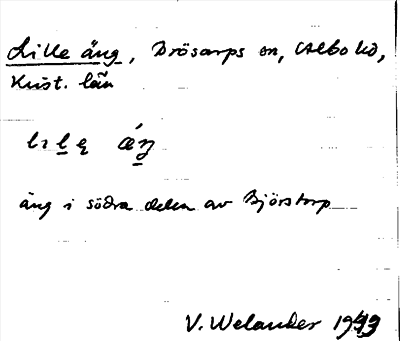 Lille äng, Brösarps sn, Albo hd,
Krist. län
äng i södra delen av Björstorp
V. Welander 1949